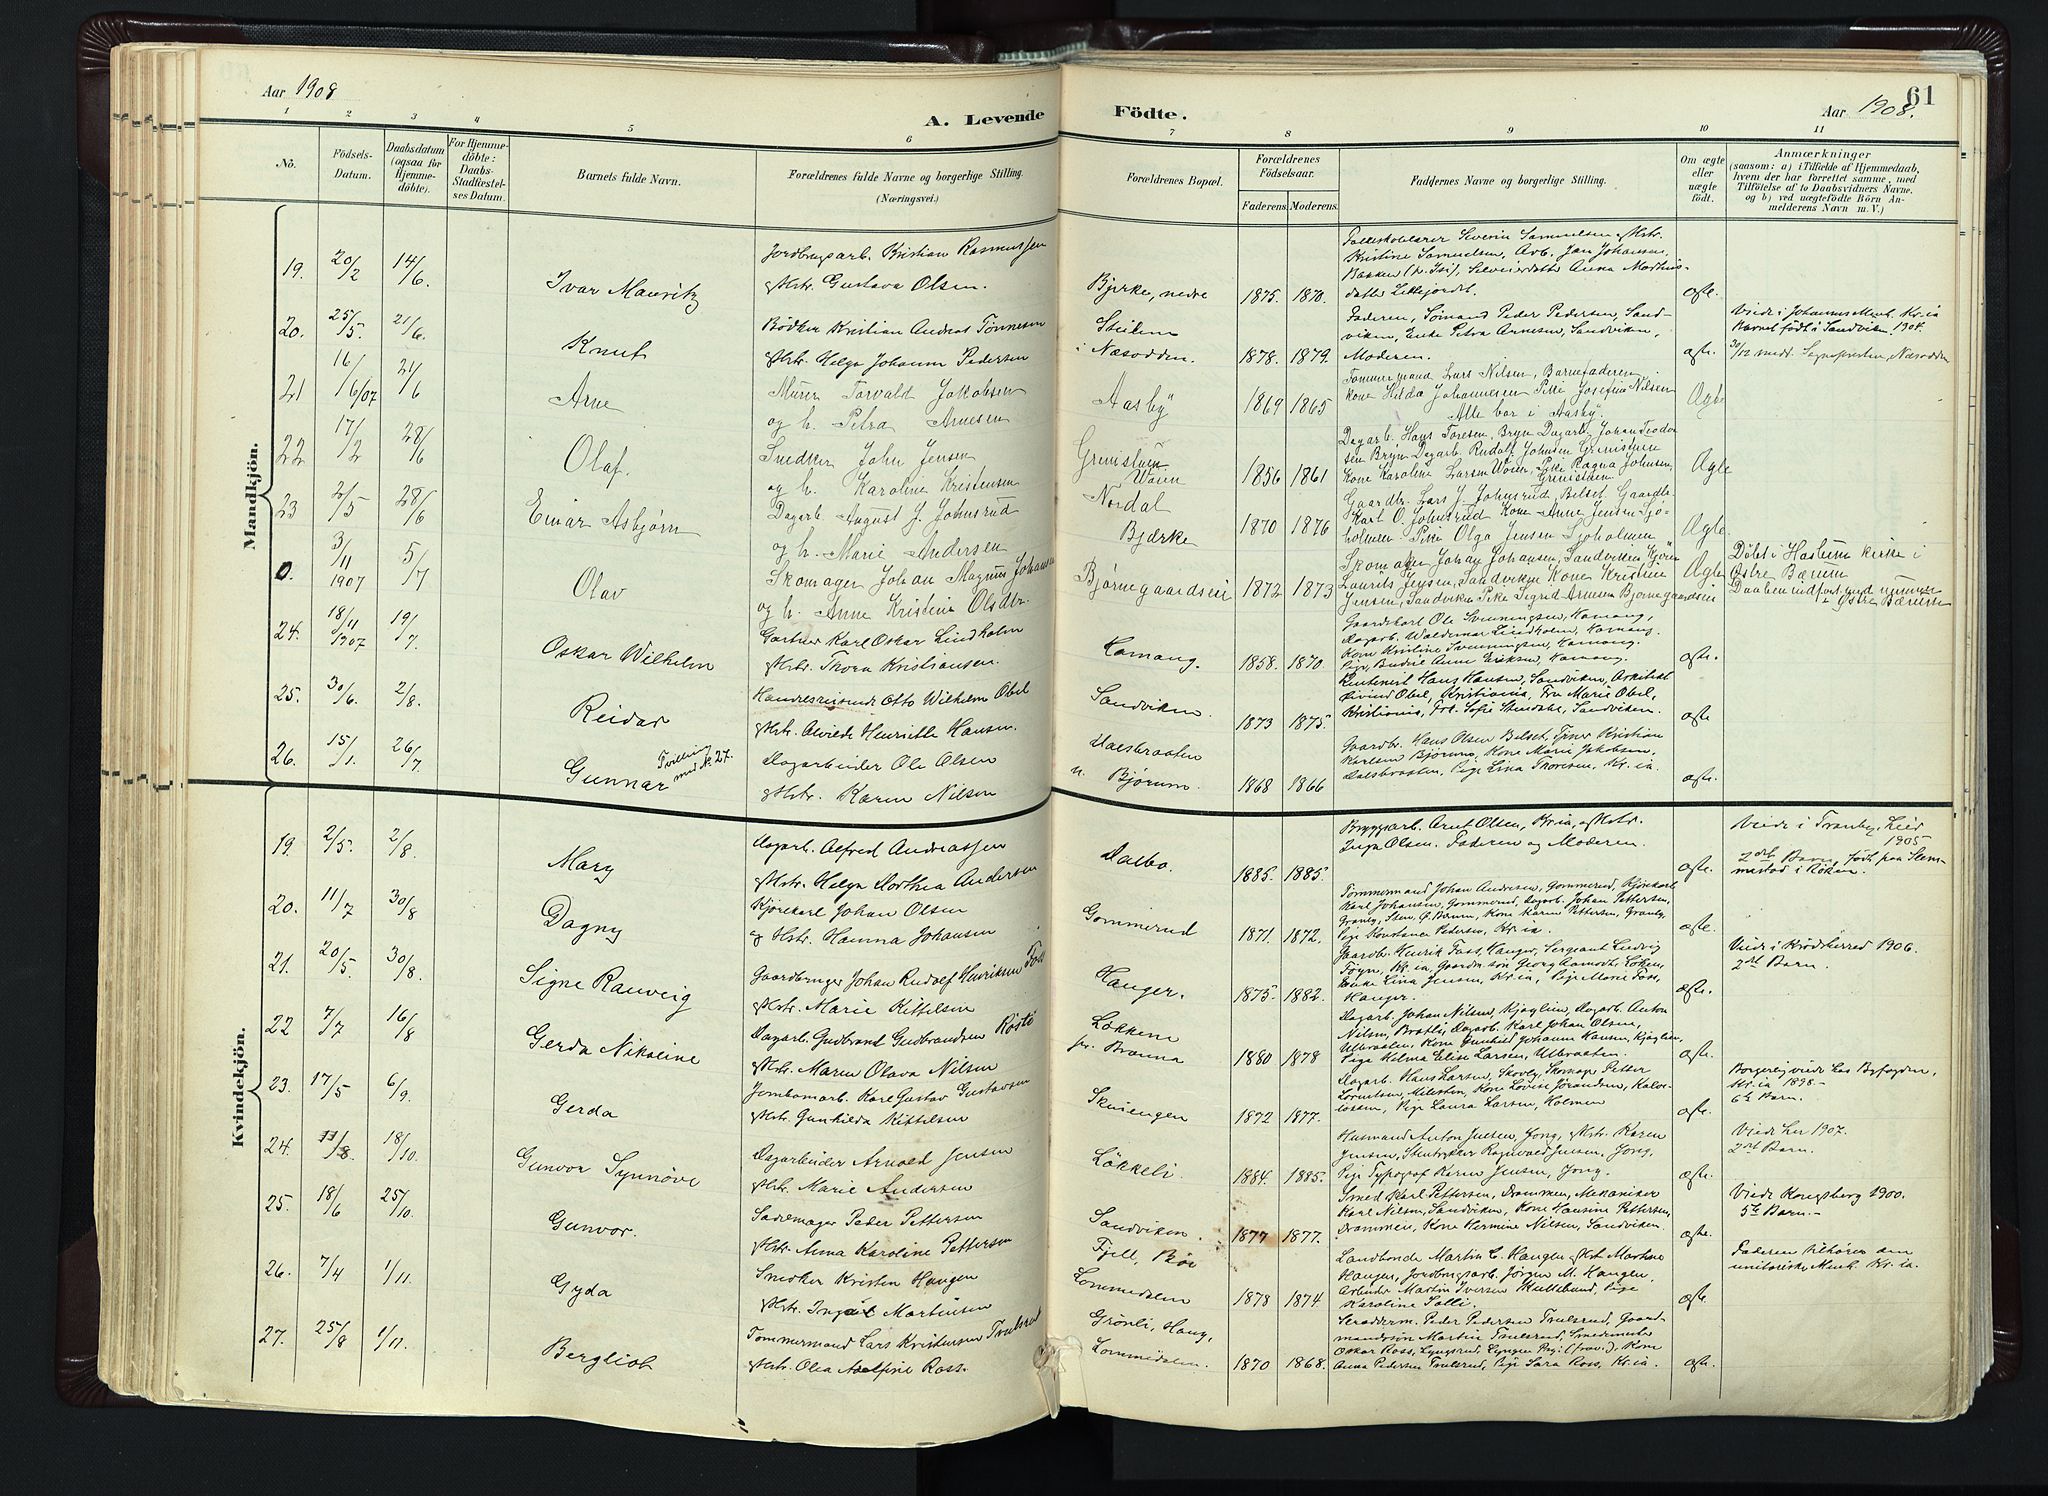 Aar 1908
A. Levende Födte.
Aar 1908.
61
1 2 3 4 5 6 7 8 9 10 11
Nô.
Födsels-Datum.
Daabsdatum (ogsaa for Hjemme-döbte).
For Hjemme-döbte: Daabs-Stadfæstel-ses Datum.
Barnets fulde Navn.
Forældrenes fulde Navne og borgerlige Stilling.
(Næringsvei.)
Forældrenes Bopæl.
Forældrenes Födselsaar.
Faderens. Moderens.
Faddernes Navne og borgerlige Stilling.
Om ægte eller uægte födt.
Anmærkninger
(saasom: a) i Tilfælde af Hjemmedaab, hvem der har forrettet samme, med Tilföielse af to Daabsvidners Navne, og b) ved uægtefödte Börn An-melderens Navn m. V.)
Mandkjön.
19. 20/2 14/6. Ivar Mauritz
Jordbrugsarb. Kristian Rasmussen
Hstr. Gustava Olsen.
Bjerke, nedre 1875. 1870.
Folkeskolelærer Severin Samuelsen Hstr.
Kristine Samuelsen, Arb. Jan Johansen,
Bakken
Anna Mathis-
datter Lillejordet.
ægte.
20. 25/5. 21/6. Knut
Bødker Kristian Andreas Tønnesen
Hstr. Helga Johanne Pedersen
i Næsodden. 1878. 1879.
Faderen, Sømand Peder Pedersen, Sand-
viken, Enke Petra Arnesen, Sandviken,
Moderen.
ægte.
Viede i Johannes Menh. Kr.ia
Barnet født i Sandviken 1904.
30/12 medd. Sognepresten, Næsodden
21 16/6/07 24/6 Arne
Murer Torvald Jakobsen
og h. Petra Arnesen
Aasby 1869 1865
Tømmermand Lars Nilsen, Barnefaderen
Kone Hilda Johannesen Pike Josefine Nilsen
Alle bor i Aasby.
Ægte
22 17/2 28/6 Olaf.
Snedker John Jensen
og h. Karoline Kristensen
Grinistuen
Wøien 1856 1861
Dagarb. Hans Toresen, Bryn Dagarb. Johan Teodor
sen Bryn Dagarb. Rudolf Johnsen Grinistuen
Kone Karoline Larsen Wøien, Pike Ragna Johnsen,
Grinistuen.
Ægte
23 2/5 28/6 Einar Asbjørn
Dagarb. August J. Johnsrud
og h. Marie Andersen
Nordal
Bjærke 1870 1876
Gaardbr. Lars J. Johnsrud Belset, Gaardbr.
Karl O. Johnsrud Kone Anne Jensen Sjø-
holmen Pike Olga Jensen Sjøholmen
Ægte
0. 3/11 1907 5/7 Olav
Skomager Johan Magnus Johansen
og h. Anne Kristine Olsdtr.
Bjørnegaardseie 1872 1873
Skomager Johan Johansen, Sandviken
Laurits Jensen, Sandviken Kone Kristine
Jensen, Sandviken Pike Sigrid Arnesen Bjørnegaardseie
Ægte
Døbt i Haslum kirke i
Østre Bærum
Daaben indført med nummer
i Østre Bærum
24. 18/11 1907 19/7. Oskar Wilhelm
Gartner Karl Oskar Lindholm
Hstr. Thora Kristiansen.
Hamang. 1858. 1870.
Gaardskarl Ole Svenningsen, Hamang,
Dagarb. Waldemar Lindholm, Hamang.
Kone Kristine Svenningsen, Hamang.
Pige Anne Eriksen, Hamang.
ægte.
25. 30/6. 2/8. Reidar
Handelsreisende Otto Wilhelm Obel
Hstr. Alvilde Henriette Hansen.
Sandviken. 1873 1875.
Rentenist Hans Hansen, Sandviken, Arkitekt
Eivind Obel, Kristiania, Fru Marie Obel,
Kristiania, Frk. Sofie Stendahl, Sandviken.
ægte
26. 15/1. 26/7. Gunnar Tvilling med N. 27.
Dagarbeider Ole Olsen
Hstr. Karen Nilsen
Dalsbraaten
n. Bjørum. 1868 1866
Gaardbr. Hans Olsen Belset, Tjener Kristian
Karlsen Bjørum, Kone Marie Jakobsen,
Dalsbraaten, Pige Lina Thoresen, Kr.ia.
ægte.
Kvindekjön.
19. 2/5. 2/8. Mary
Dagarb. Alfred Andreassen
Hstr. Helga Dorthea Andersen
Dalbo. 1885. 1885.
Bryggearb. Arnt Olsen, Kr.ia, Hstr.
Inga Olsen. Faderen og Moderen.
ægte.
Viede i Tranby, Lier
1905
2det Barn, født paa Slem-
mestad i Røken.
20. 11/7 30/8 Dagny
Kjørekarl Johan Olsen
og Hstr. Hanna Johansen
Gommerud 1871. 1872.
Tømmermand Johan Andresen, Gommerud, Kjørekarl
Karl Johansen, Gommerud, Dagarb. Johan Pettersen,
Granby, Kone Karen Pettersen, Granby,
Pige Konstanse Pedersen, Kr.ia.
ægte.
21. 20/5. 30/8. Signe Ranveig
Gaardbruger Johan Rudolf Henriksen Foss
Hstr. Marie Kittelsen
Hauger. 1875. 1882.
Gaardb. Henrik Foss, Hauger, Sergeant Ludvig
Føyn, Kr.ia, Gaardm. søn Georg Aamodt Løken,
Enke Lina Jensen, Kr.ia, Pige Marie Foss,
Hauger.
ægte.
Viede i Krødsherred 1906.
2det Barn.
22 7/7 16/8 Gerda Nikoline
Dagarb. Gudbrand Gudbrandsen Røste
Hstr. Maren Olava Nilsen
Løkken
pr. Branna 1880 1878
Dagarb. Johan Nilsen, Kjaglien, Dagarb. Anton
Nilsen, Bratli, Dagarb. Karl Johan Olsen,
Ulbraaten, Kone Gunhild Johanne Hansen, Kjaglien,
Pige Helma Elise Larsen, Ulbraaten.
ægte
23. 17/5 6/9. Gerda
Jernbanearb. Karl Gustav Gustavsen
Hstr. Gunhilda Kittelsen
Skuiengen 1872 1877.
Dagarb. Hans Larsen, Skovly, Skomag. Petter
Lorentsen, Milesten, Kone Lovise Jørandsen, Kalvs-
løsen, Pige Laura Larsen, Holmen
ægte
Borgerlig viede hos Byfogden,
Kr.ia 1898.-
6te Barn.
24. 11/8. 18/10. Gunvor Synnøve
Dagarbeider Arnold Jensen
Hstr. Marie Andersen
Løkkeli. 1884. 1885.
Husmand Anton Juelsen, Jong, Hstr. Karen
Jensen, Stentrykker Ragnvald Jensen, Jong,
Pige Typograf Karen Jensen, Jong.
ægte.
Viede her 1907.
2det Barn.
25. 18/6 25/10. Gunvor.
Sadelmager Peder Pettersen
Hstr. Anna Karoline Pettersen
Sandviken. 1877 1877.
Smed Karl Pettersen, Drammen, Mekaniker
Karl Nilsen, Sandviken, Kone Hansine Pettersen,
Drammen, Kone Hermine Nilsen, Sandviken.
ægte.
Viede Kongsberg 1900.
5te Barn.-
26. 7/4 1/11. Gyda
Snedker Kristen Haugen
Hstr. Martinsen
Fjell, Bøe
Lommedalen 1878 1874.
Landbonde Martin C. Haugen Hst. Martine
Haugen, Jordbrugsarb. Jørgen M. Haugen,
Arbeider Martin Iversen Kullebund, Pige
Karoline Solli.
ægte.
Faderen tilhører den
unitariske Menh. Kr.ia.
27. 25/8 1/11. Bergliot
Tømmermand Lars Kristensen Trulsrud
Hstr. Olea Adolfine Ross.
Grønli, Haug,
Lommedalen. 1870 1868.
Peder Pedersen Trulsrud, Gaard-
mandssøn Martin Trulsrud, Smedmester
Oskar Ross, Lyngsrud, Lyngen (frav.), Kone
Anna Pedersen Trulsrud, Pige Sara Ross, Kr.ia.
ægte.